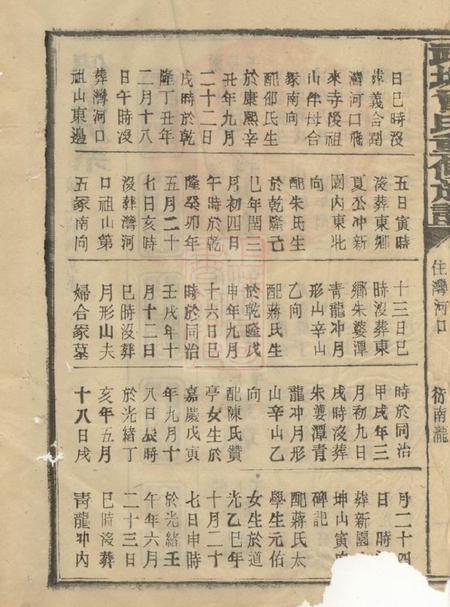 武城曾氏重修族譜
住灣河口
衍南瀧
日巳時沒
葬義合剅
灣河口飛
來寺後祖
山母合
冢南向
配邵氏生
於康熙辛
丑年九月
二十二日
戌時於乾
隆丁丑年
二月十八
日午時沒
葬灣河口
祖山東邊
五日寅時
沒葬東鄉
夏公冲新
園內東北
向
配朱氏生
於乾隆己
巳年閏三
月初四日
午時於乾
隆癸卯年
五月二十
七日亥時
沒葬灣河
口祖山第
五冢南向
十三日巳
時沒葬東
鄉朱婆潭
青龍冲月
形山辛山
乙向
配蔣氏生
於乾隆戊
申年九月
十六日巳
時於同治
壬戌年十
月十二日
巳時沒葬
月形山夫
婦合冢墓
時於同治
甲戌年三
月初九日
戌時沒葬
朱婆潭青
龍冲月形
山辛山乙
向
配陳氏贊
亭女生於
嘉慶戊寅
年九月十
八日辰時
於光緒丁
亥年五月
十八日戌
月二十四
日時
葬新園
坤山寅
碑記
配蔣氏太
學生元佑
女生於道
光乙巳年
十月二十
七日申時
於光緒壬
午年六月
二十三日
巳時沒葬
青龍冲內